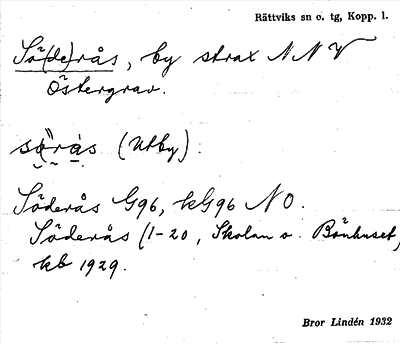 Rättviks sn o. tg, Kopp. l.
Sö(de)rås, by strax NNV
Östergrav.
sö̀rås (Utby).
Söderås G96, kG96 NO.
Söderås (1-20, Skolan o. Bönhuset)
kb 1929.
Bror Lindén 1932